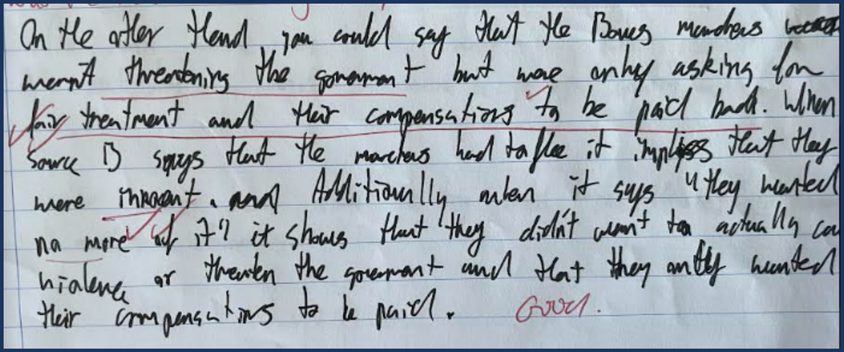 On the other Hand you could say that the Bonus marchers
weren't threatening the government but were only asking for
fair treatment and their compensations to be paid back. When
Source D says that the marchers had to flee it implies that they
were innocent. and Additionally when it says "they wanted
no more of it" it shows that they didn't want to actually
violence or threaten the government and that they only wanted
their compensations to be paid. Good.